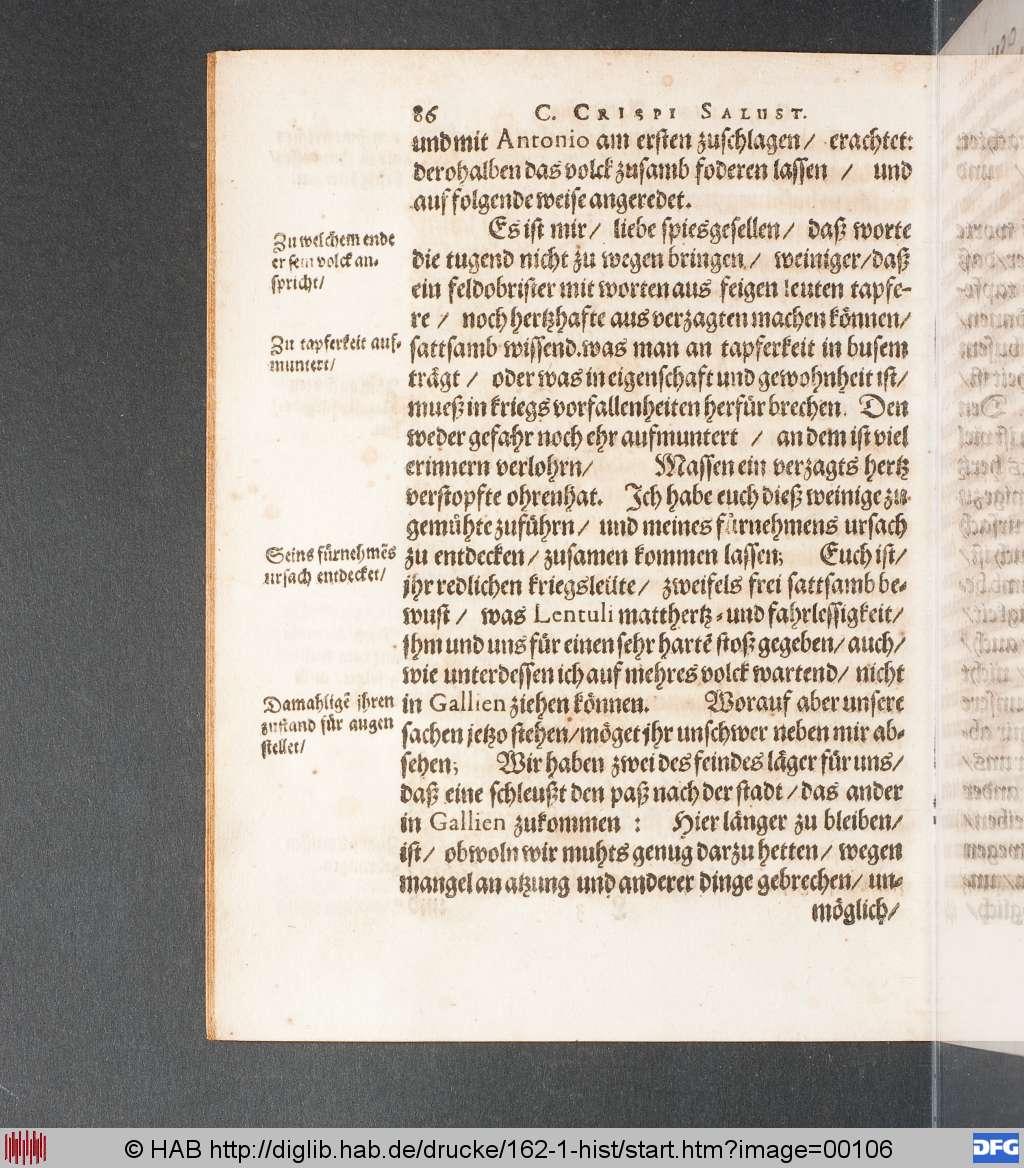 86 C. CRISPI SALUST.
und mit Antonio am ersten zuschlagen/ erachtet:
derohalben das volck zusamb foderen lassen / und
auf folgende weise angeredet.
Es ist mir/ liebe spiesgesellen/ daß worte
die tugend nicht zu wegen bringen/ weiniger/daß
ein feldobrister mit worten aus feigen leuten tapfe-
re / noch hertzhafte aus verzagten machen können/
sattsamb wissend.was man an tapferkeit in busem
trägt / oder was in eigenschaft und gewohnheit ist/
mueß in kriegs vorfallenheiten herfür brechen. Den
weder gefahr noch ehr aufmuntert / an dem ist viel
erinnern verlohrn/ Massen ein verzagts hertz
verstopfte ohren hat. Ich habe euch dieß weinige zu
gemühte zuführn/ und meines fürnehmens ursach
zu entdecken/ zusamen kommen lassen; Euch ist/
jhr redlichen kriegsleüte/ zweifels frei sattsamb be-
wust / was Lentuli matthertz- und fahrlessigkeit/
jhm und uns für einen sehr hartē stoß gegeben/ auch/
wie unterdessen ich auf mehres volck wartend/ nicht
in Gallien ziehen können. Worauf aber unsere
sachen jetzo stehen/möget jhr unschwer neben mir ab-
sehen; Wir haben zwei des feindes läger für uns/
daß eine schleußt den paß nach der stadt/das ander
in Gallien zukommen : Hier länger zu bleiben/
ist/ obwoln wir muhts genug darzu hetten/ wegen
mangel an atzung und anderer dinge gebrechen/ un-
möglich/
Zu welchem ende
er sein volck an-
spricht/
Zu tapferkeit auf-
muntert/
Seins fürnehmēs
ursach entdecket/
Damahligē jhren
zustand für augen
stellet/
© HAB http://diglib.hab.de/drucke/162-1-hist/start.htm?image=00106
DFG